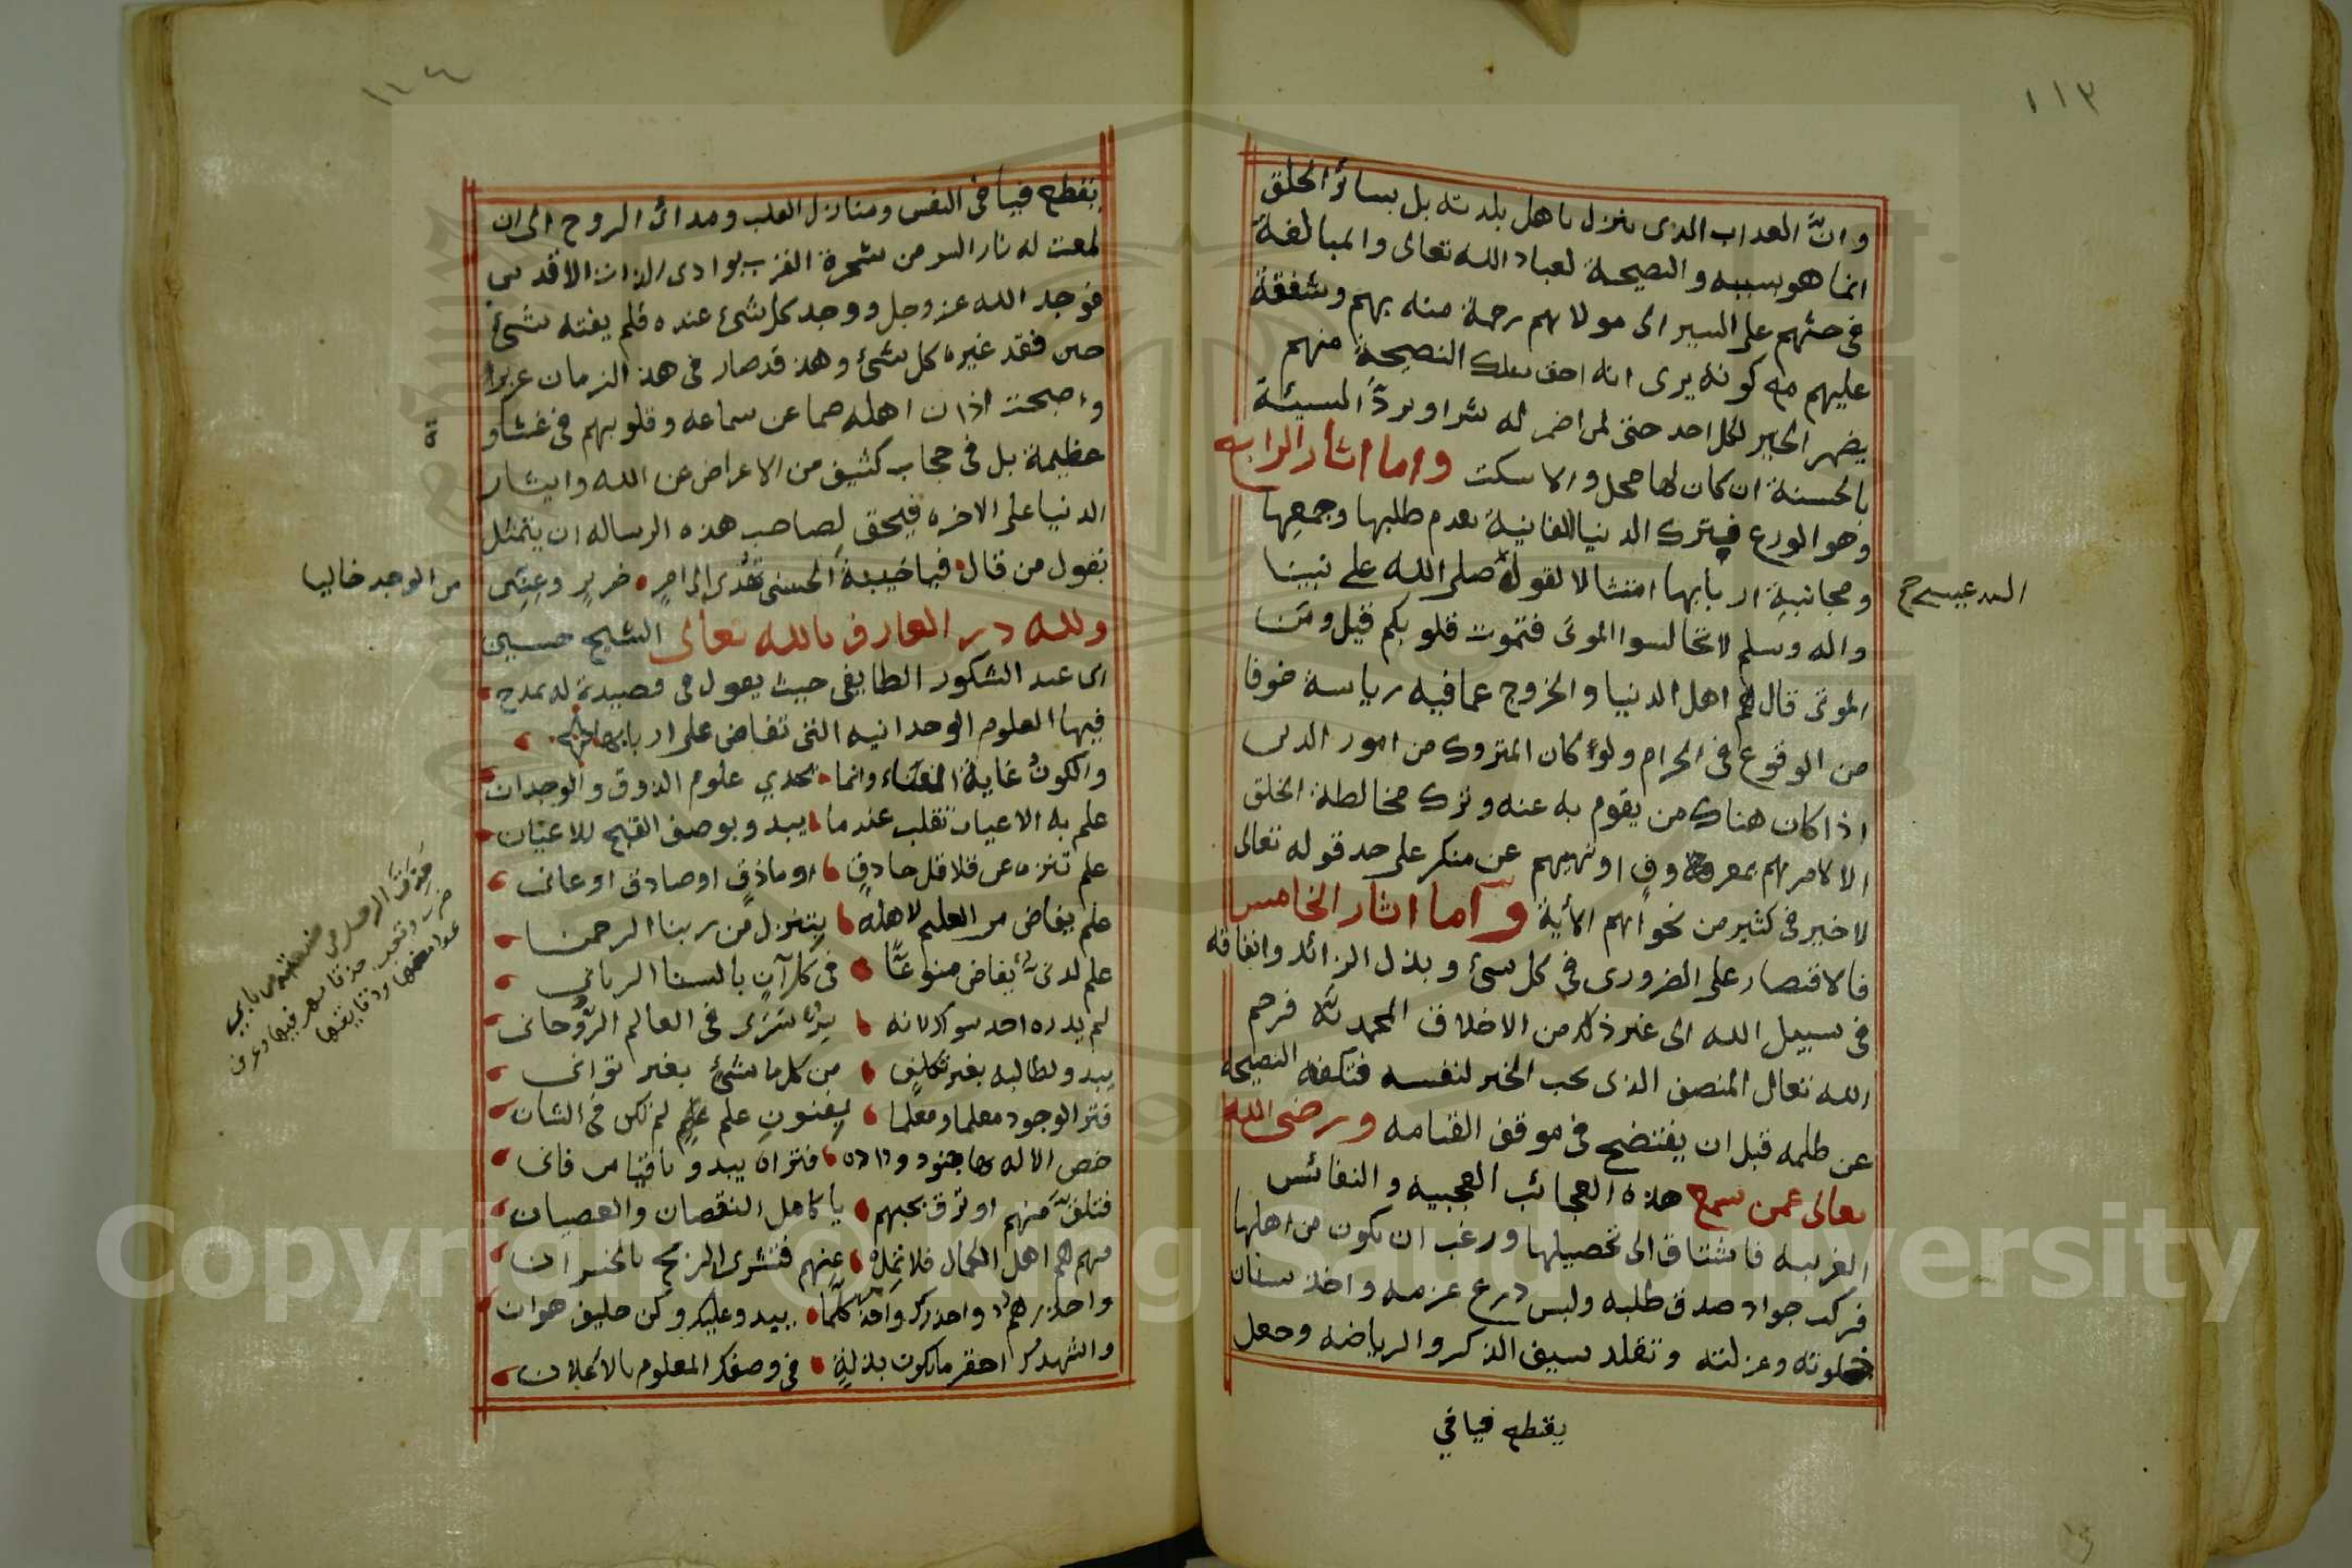 ١١٣
وان العذاب الذي ينزل باهل بلدته بل بسائر الخلق
انما هو بسببه والنصيحة لعباد الله تعالى والمبالغة
في حثهم على السير الى مولاهم رحمة منه بهم وشفقة
عليهم مع كونه يرى انه احق بتلك النصيحة منهم
يضمر الخير لكل احد حتى لمن اضمر له شرا ويردّ السيئة
بالحسنة ان كان لها محل والا سكت واما اثار الرابع
وهو الورع فيترك الدنيا الفانية بعدم طلبها وجمعها
ومجانبة اربابها امتثالا لقوله صلى الله على نبينا
السيد عيسى ح
واله وسلم لا تجالسوا الموتى فتموت قلوبكم قيل ومن
الموتى قال هم اهل الدنيا والخروج عما فيه رياسة خوفا
من الوقوع في الحرام ولو كان المتروك من امور الدين
اذا كان هناك من يقوم به عنه وترك مخالطة الخلق
الا لامرهم بمعروف او نهيهم عن منكر على حد قوله تعالى
لا خير في كثير من نجواهم الآية واما اثار الخامس
فالاقتصار على الضروري في كل شئ وبذل الزائد وانفاقه
في سبيل الله الى غير ذلك من الاخلاق المحمدية فرحم
الله تعالى المنصف الذي يحب الخير لنفسه فتكفه النصيحة
عن ظلمه قبل ان يفتضح في موقف القيامه ورضى الله
تعالى عمن سمع هذه العجائب العجيبه والنفائس
الغريبه فاشتاق الى تحصيلها ورغب ان يكون من اهلها
فركب جواد صدق طلبه ولبس درع عزمه واخذ سنان
خلوته وعزلته وتقلد سيف الذكر والرياضه وجعل
يقطع فيافي
١١٤
يقطع فيافي النفس ومنازل القلب ومدائن الروح الى ان
لمعت له نار السر من شجرة القرب بوادي الذات الاقدس
فوجد الله عز وجل ووجد كل شئ عنده فلم يفته شئ
حين فقد غيره كل شئ وهذ قد صار في هذ الزمان عزيزا
واصبحت اذان اهله صما عن سماعه وقلوبهم في غشاو
ة
عظيمة بل في حجاب كثيف من الاعراض عن الله وايثار
الدنيا على الاخره فيحق لصاحب هذه الرساله ان يتمثل
بقول من قال فيا خيبة الحسنى تهدى الى امر ضرير وعنين
من الوجد خاليا
ولله در العارف بالله تعالى الشيخ حسين
ابن عبد الشكور الطايفي حيث يقول في قصيدة له يمدح
فيها العلوم الوحدانيه التي تفاض على اربابها
والكون غاية وانما تجدي علوم الذوق والوجدان
علم به الاعيان تقلب عندما يبدو بوصف القبح للاعيان
علم تنزه عن فلا قل حاذق او ماذق او صادق او عانى
علم يفاض من العليم لاهله يتنزل من ربنا الرحمن
علم لدنى يفاض منوعا في كل آن بالسنا الرباني
لم يدره احد سواه لانه سر سرى في العالم الروحاني
يبدو لطالبه بغير تكلف من كل ما شئ بغير تواني
فترا الوجود معلما ومعلما بفنون علم لم تكن في الشان
خص الاله بها جنود وداده فتراه يبدو باقيا من فانى
فتلق منهم او ترق بحبهم يا كامل النقصان والعصيان
فهم هم اهل الكمال فلا تمل عنهم فتشرى الربح بالخسران
واحذرهم واحذرك واحذر كلما يبدو عليك وكن حليف هوان
واشهدك احقر ما يكون بذلة في وصفك المعلوم بالاعلان